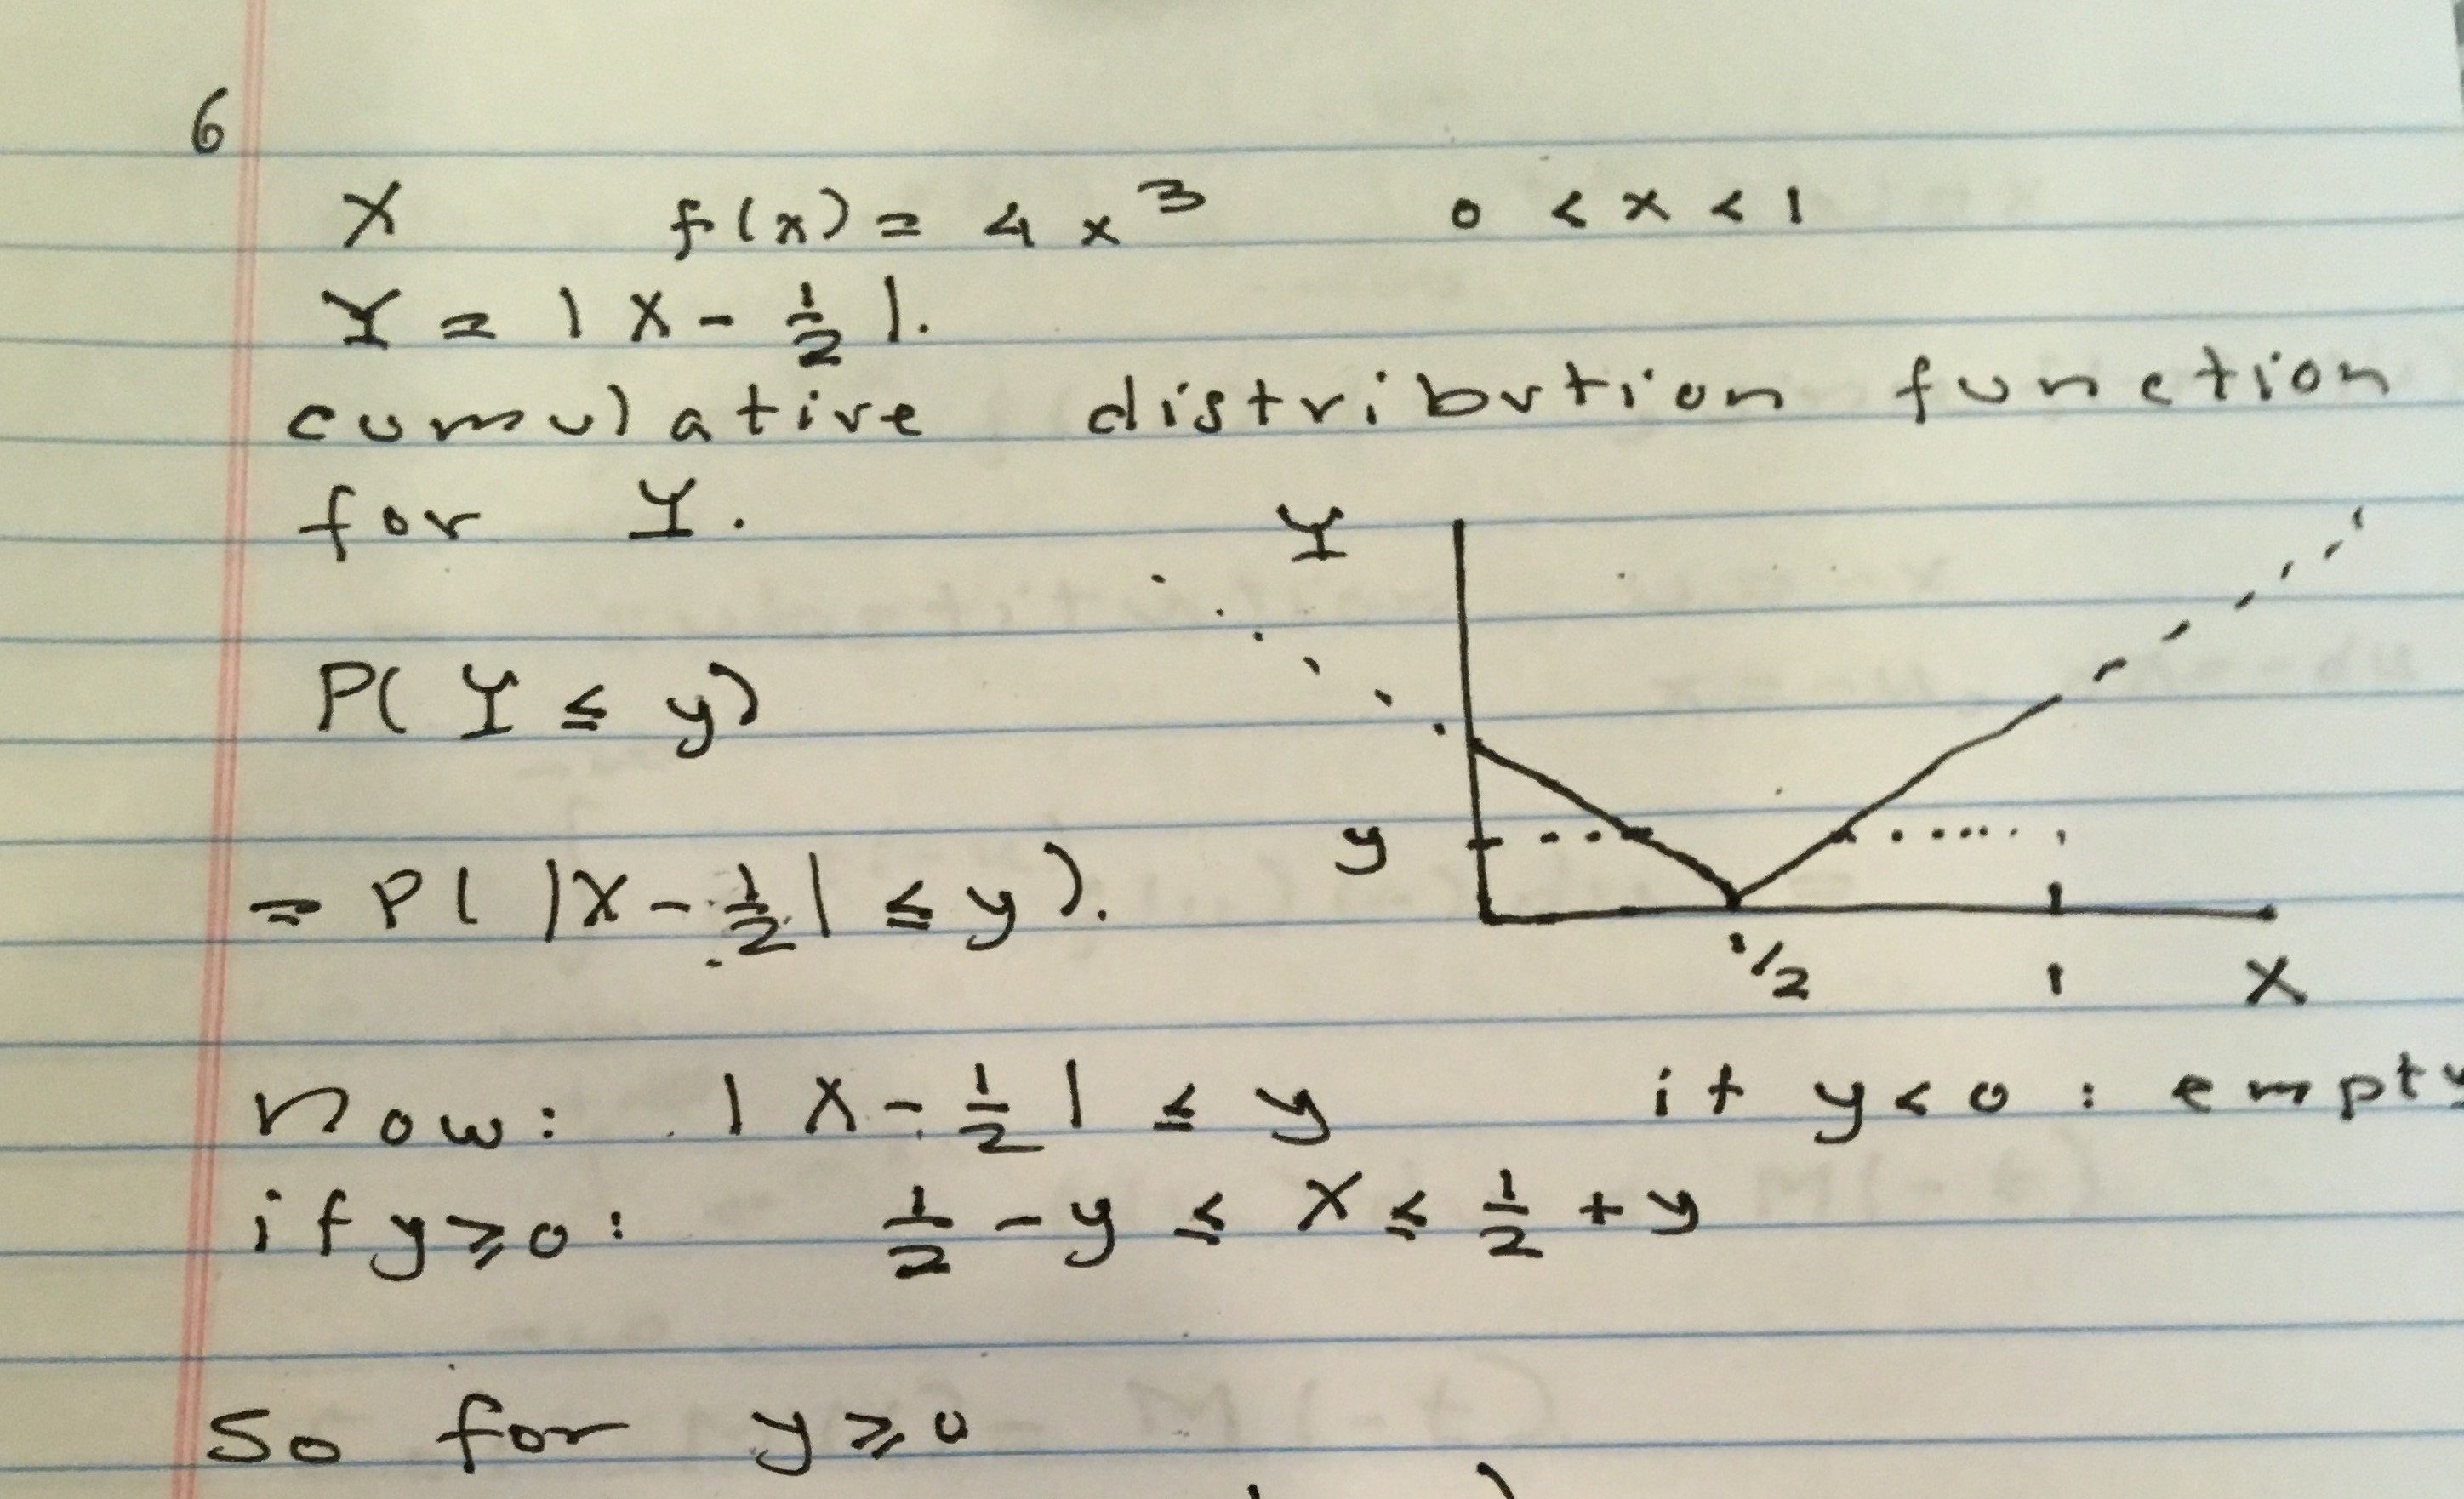 6
X f(x) = 4x³ 0 < x < 1
Y = |X - 1/2|.
cumulative distribution function
for Y.
Y
P(Y ≤ y)
y
= P( |X - 1/2| ≤ y).
1/2 1 X
Now: |X - 1/2| ≤ y if y < 0 : empty
if y ≥ 0: 1/2 - y ≤ X ≤ 1/2 + y
So for y ≥ 0